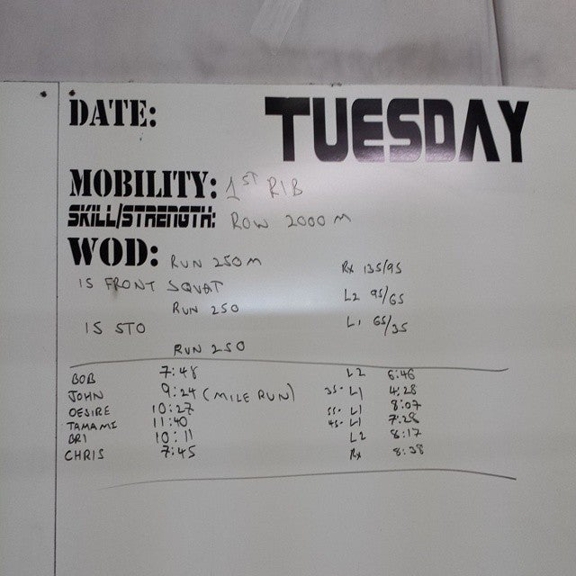 DATE: TUESDAY
MOBILITY: 1ST RIB
SKILL/STRENGTH: ROW 2000 M
WOD: RUN 250 M Rx 135/95
15 FRONT SQUAT L2 95/65
RUN 250
15 STO L1 65/35
RUN 250
BOB 7:48 L2 6:46
JOHN 9:24 (MILE RUN) 35- L1 4:28
DESIRE 10:27 55- L1 8:07
TAMAMI 11:40 45- L1 7:28
BRI 10:11 L2 8:17
CHRIS 7:45 Rx 8:38